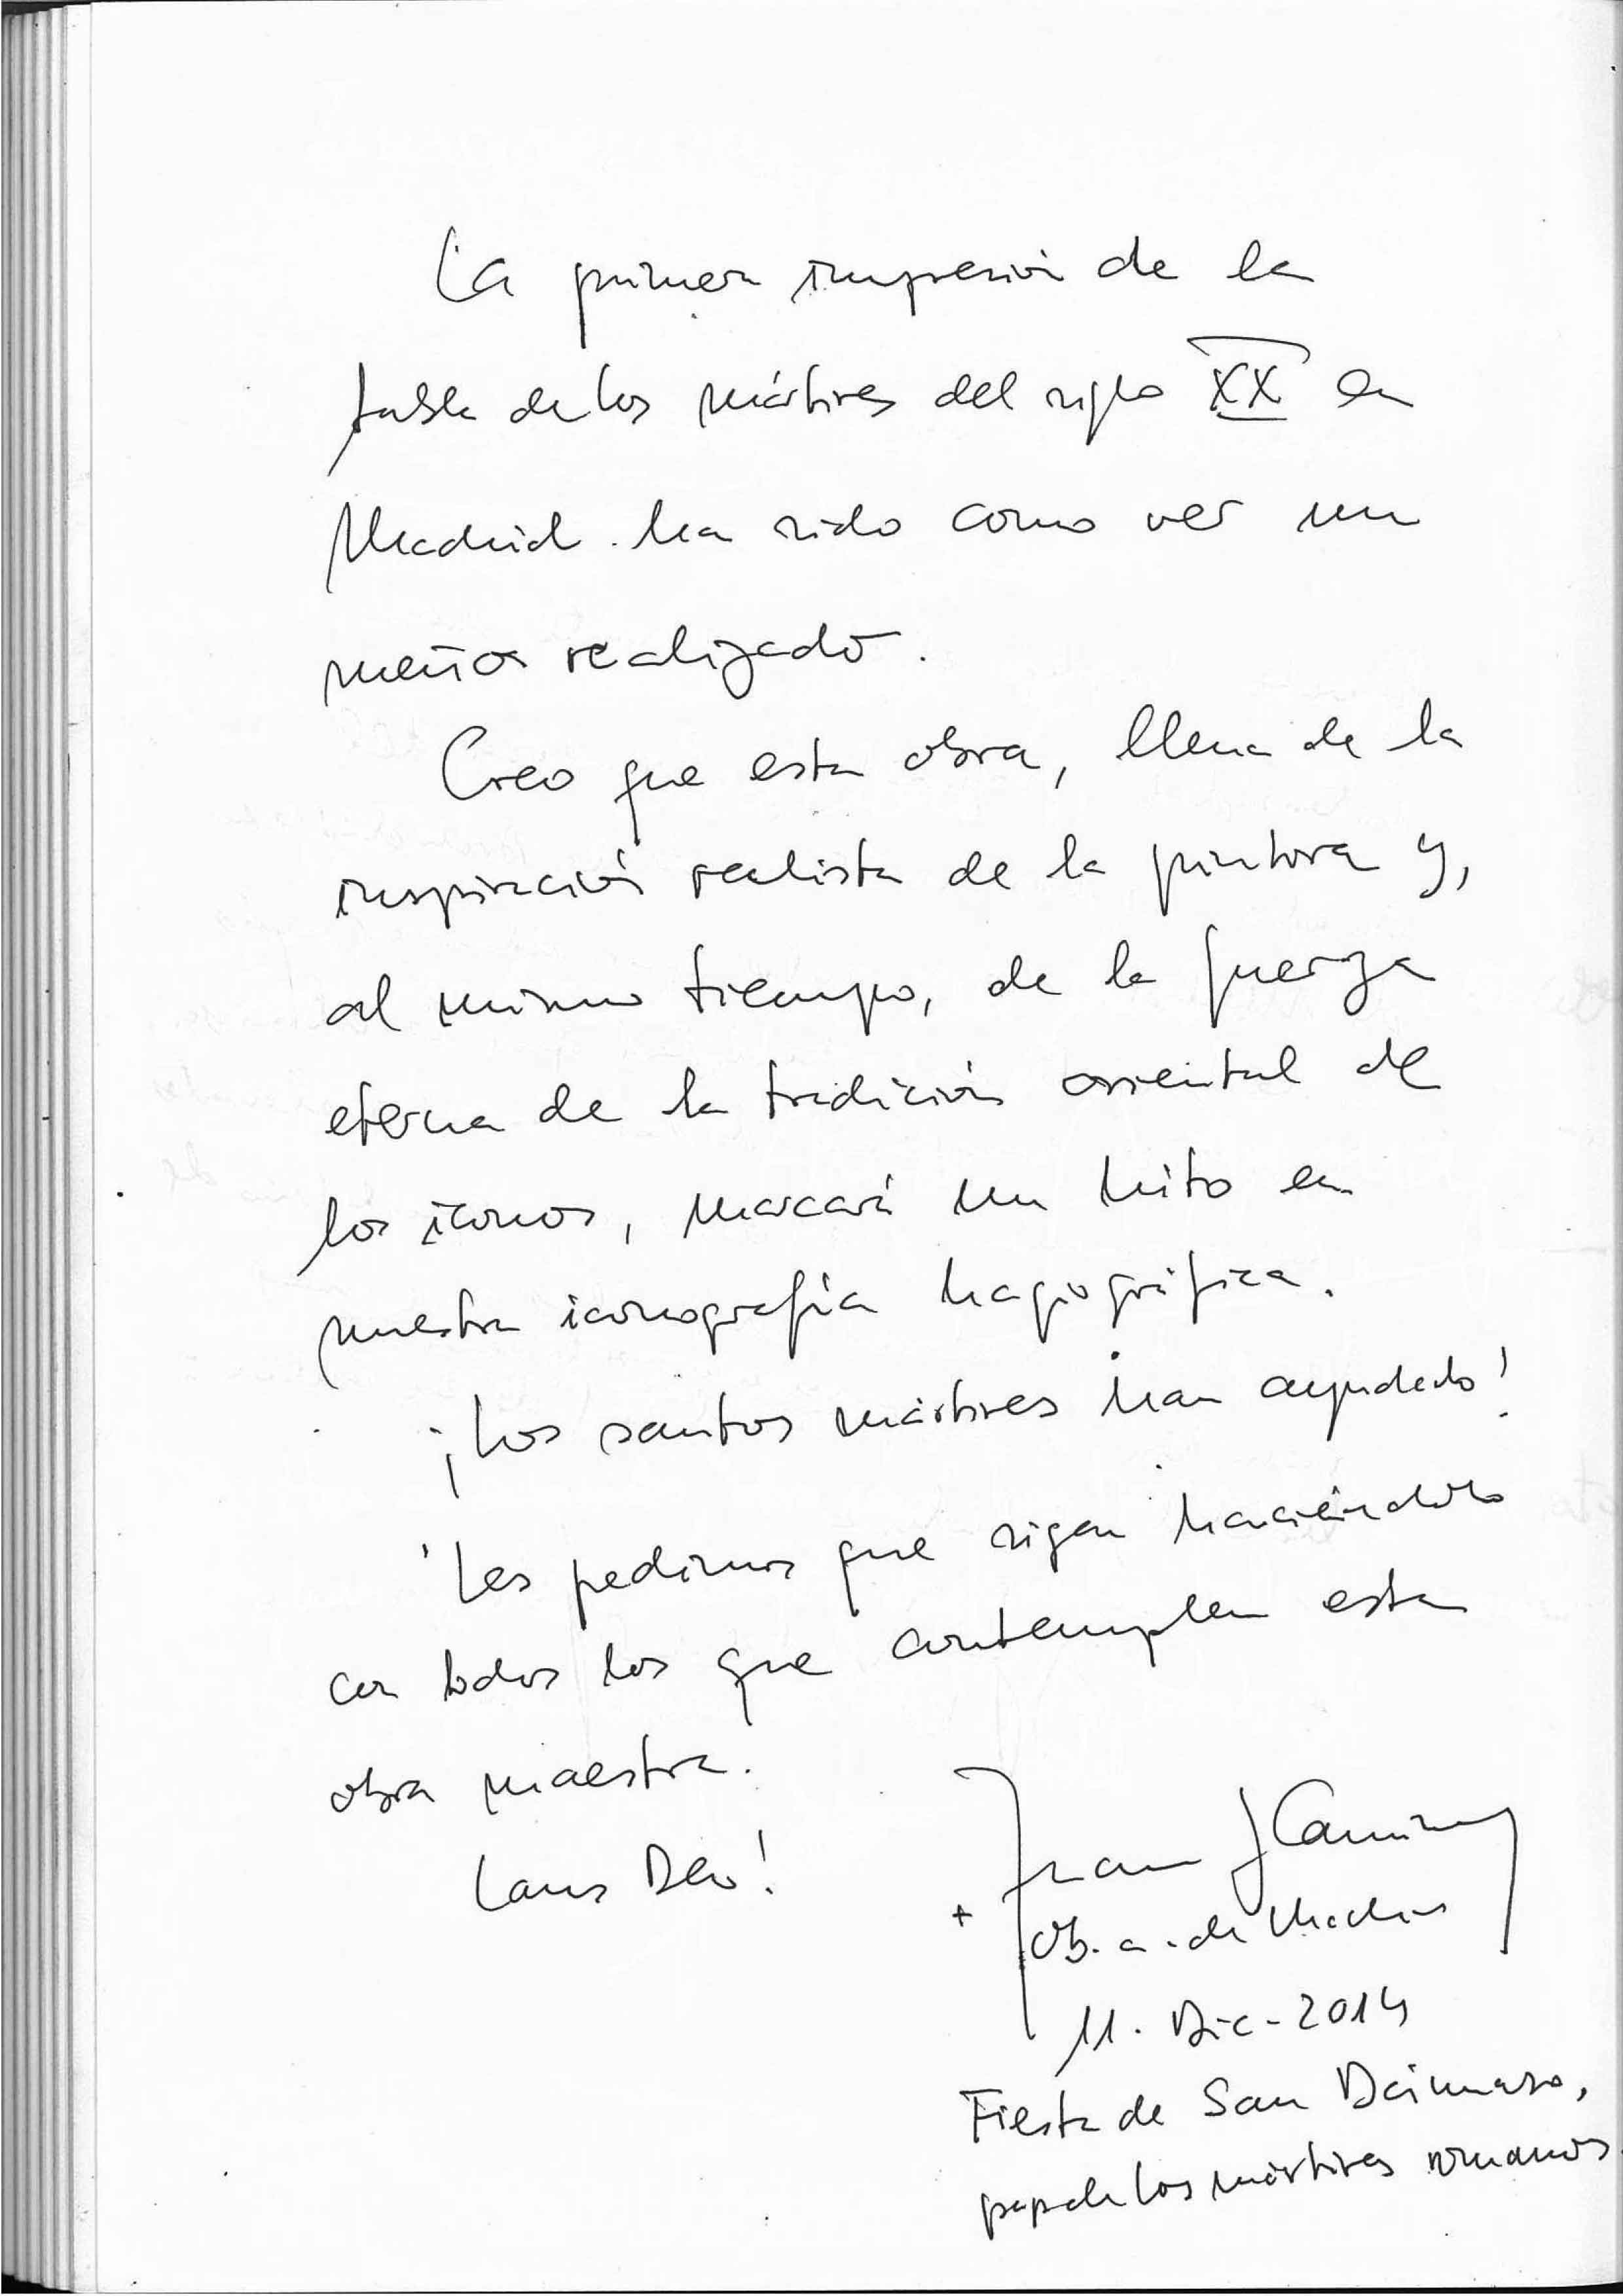 La primera impresión de la
tabla de los mártires del siglo XX en
Madrid ha sido como ver un
sueño realizado.
Creo que esta obra, llena de la
inspiración realista de la pintora y,
al mismo tiempo, de la fuerza
eterna de la tradición oriental de
los iconos, marcará un hito en
nuestra iconografía hagiográfica.
¡Los santos mártires han ayudado!
Les pedimos que sigan haciéndolo
con todos los que contemplen esta
obra maestra.
Laus Deo!
Juan A Camino
+ Ob. a. de Madrid
11. Dic - 2014
Fiesta de San Dámaso,
papa de los mártires romanos.